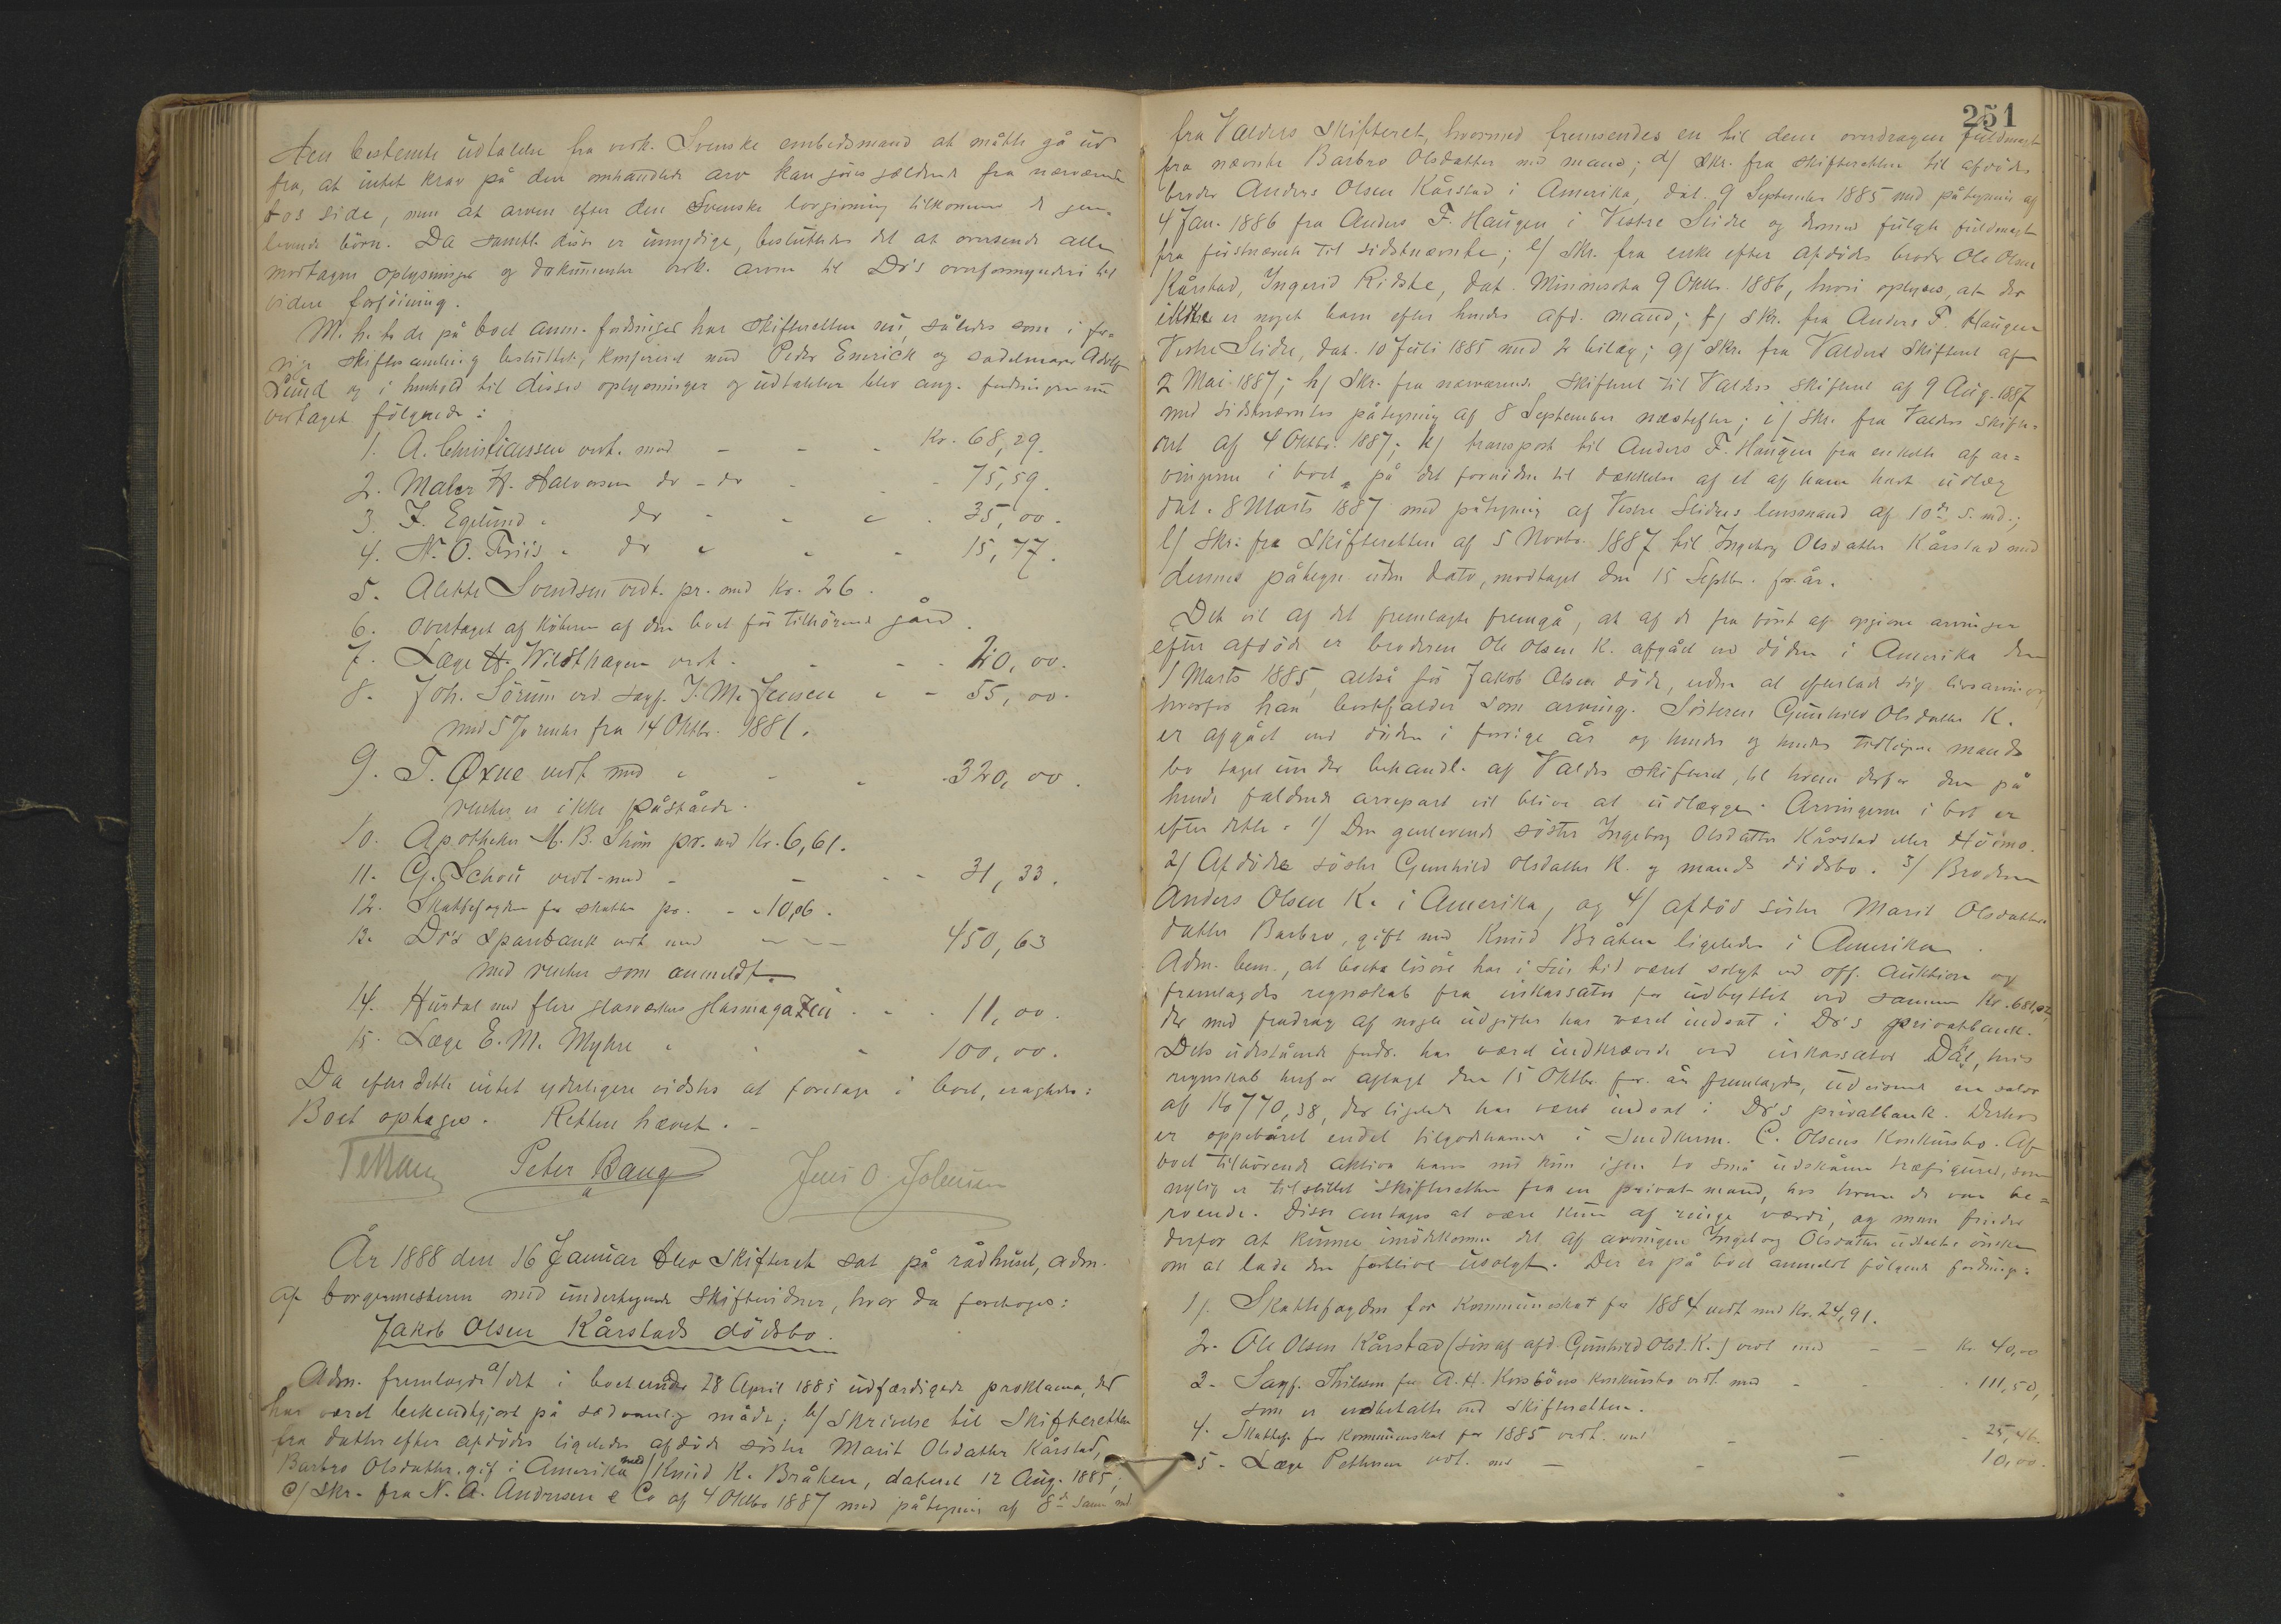 den bestemte udtalelse fra vedk. Svenske embedsmand at måtte gå ud
fra, at intet krav på den omhandlede arv kan gjøres gældende fra nærværende
bos side, men at arven efter den Svenske lovgivning tilkommer de gen-
levende börn. Da samtl. disse er umyndige, besluttedes det at oversende alle
modtagne oplysninger og dokumenter vedk. arven til Do's overformynderi til
videre forföining.
M. h. t. de på boet anm. fordringer har skifteretten nu, således som i for-
rige skiftesamling besluttet, konfereret med Peder Emerick og sadelmager Adolf
Lund og i henhold til disses oplysninger og udtalelser blev ang. fordringerne nu
vedtaget fölgende:
1. A. Christiansen vedt. med - - - Kr. 68,29.
2. Maler H. Halvorsen do - do - - - 75,59.
3. F. Egelund - do - - - 35,00.
4. N. O. Friis - do - - - 15,77.
5. Alette Svendsen vedt. pr. med Kr. 26.
6. overtaget af köberen af den boet för tilhörende gård.
7. Læge H. Wildthagen vedt. - - - 20,00.
8. Joh. Sörum ved sagf. J. M. Jensen - - 55,00.
med 5 % renter fra 14 Oktbr. 1881.
9. T. Øxne vedt med - - - 320,00.
renter er ikke påståede.
10. Apotheker M. B. Thüm pr. med Kr. 6,61.
11. G. Schou vedt. med - - - 31,33.
12. Skattefogden for skatter pr. - - 10,06.
13. Do's Sparebank vedt. med - - - 450,63
med renter som anmeldt.
14. Hurdal med flere glasværkers glasmagazin - - - 11,00.
15. Læge E. M. Myhre - - - 100,00.
Da efter dette intet yderligere vidstes at foretage i boet, eragtedes:
Boet optages. Retten hævet. -
Peter Bang Jens O. Johnsen
År 1888 den 16 Januar blev Skifteret sat på rådhuset, adm.
af borgermesteren med undertegnede Skiftevidner, hvor da foretoges:
Jakob Olsen Kårstads dödsbo.
Adm. fremlagde a/ det i boet under 28 April 1885 udfærdigede proklama, der
har været bekendtgjort på sædvanlig måde; b/ Skrivelse til Skifteretten
fra datter efter afdödes ligeledes afdöde söster Marit Olsdatter Kårstad,
Barbro Olsdatter, gift i Amerika med Knud K. Bråken, dateret 12 Aug. 1885;
c/ Skr. fra N. A. Andresen & Co af 4 Oktbr 1887 med påtegning af 8de samme md
251
fra Valders Skifteret, hvormed fremsendes en til dem overdragen fuldmagt
fra nævnte Barbro Olsdatter med mand; d/ Skr. fra skifteretten til afdödes
broder Anders Olsen Kårstad i Amerika, dat. 9 September 1885 med påtegning af
4 Jan. 1886 fra Anders F. Haugen i Vestre Slidre og dermed fulgte fuldmagt
fra förstnævnte til sidstnævnte; e/ Skr. fra enke efter afdödes broder Ole Olsen
Kårstad, Ingerid Ridste, dat. Minnesota 9 Oktbr. 1886, hvori oplyses, at der
ikke er noget barn efter hendes afd. mand; f/ Skr. fra Anders F. Haugen
Vestre Slidre, dat. 10 Juli 1885 med 2 bilag; g/ Skr. fra Valders Skifteret af
2 Mai 1887; h/ Skr. fra nærværende Skifteret til Valders skifteret af 9 Aug. 1887
med sidstnævntes påtegning af 8 September næstefter; i/ Skr. fra Valders Skifte-
ret af 4 Oktbr. 1887; k/ transport til Anders F. Haugen fra enkelte af ar-
vingerne i boet på det fornödne til dækkelse af et af ham havt udlæg
dat. 8 Marts 1887 med påtegning af Vestre Slidres lensmand af 10de s. md.;
l/ Skr. fra Skifteretten af 5 Novbr. 1887 til Ingeborg Olsdatter Kårstad med
dennes påtegn. uden dato, modtaget den 15 Septbr. for. år.
Det vil af det fremlagte fremgå, at af de fra först af opgivne arvinger
efter afdöde er broderen Ole Olsen K. afgået ved döden i Amerika den
1 Marts 1885, altså för Jakob Olsen döde, uden at efterlade sig livsarvinger,
hvorfor han bortfalder som arving. Sösteren Gunhild Olsdatter K.
er afgået ved döden i forrige år og hendes og hendes tidligere mands
bo taget under behandl. af Valders skifteret, til hvem derfor den på
hende faldende arvepart vil blive at udlægge. Arvingerne i bot er
efter dette: 1/ Den genlevende söster Ingeborg Olsdatter Kårstad eller Höimo.
2/ Afdöde söster Gunhild Olsdatter K. og mands dödsbo. 3/ Broderen
Anders Olsen K. i Amerika, og 4/ afdöd söster Marit Olsdatters
datter Barbro, gift med Knud Bråken ligeledes i Amerika.
Adm. bem., at boets lösöre har i sin tid været solgt ved off. auktion og
fremlagdes regnskab fra inkassator for udbyttet ved samme Kr. 681,02,
der med fradrag af nogle udgifter har været indsat i Do's privatbank.
Dets udestående fordr. har været indkrævede ved inkassator Dål, hvis
regnskab herfor aflagt den 15 Oktbr. for. år fremlagdes, udvisende en saldo
af Kr 770,38, der ligeledes har været indsat i Do's privatbank. Derhos
er oppebåret endel tilgodehavende i Snedkerm. C. Olsens Konkursbo. Af
boet tilhörende aktiva haves nu kun igen to små udskårne træfigurer, som
nylig er tilstillet skifteretten fra en privat mand, hos hvem de var be-
roende. Disse antages at være kun af ringe værdi, og man finder
derfor at kunne imödekomme det af arvingen Ingeborg Olsdatter udtalte önske
om at lade den forblive usolgt. Der er på boet anmeldt fölgende fordringer:
1/. Skattefogden for Kommuneskat for 1884 vedt med Kr. 24,91.
2. Ole Olsen Kårstad (sön af afd. Gunhild Olsd. K.) vedt med - - Kr. 40,00
3. Sagf. Thilesen for A. H. Korsböns Konkursbo vedt. med - - - 111,50,
som er indbetalte ved Skifteretten.
4. Skattef. for Kommuneskat for 1885 vedt. med - - 25,46.
5. Læge Pettersen vdt. med - - - 10,00.